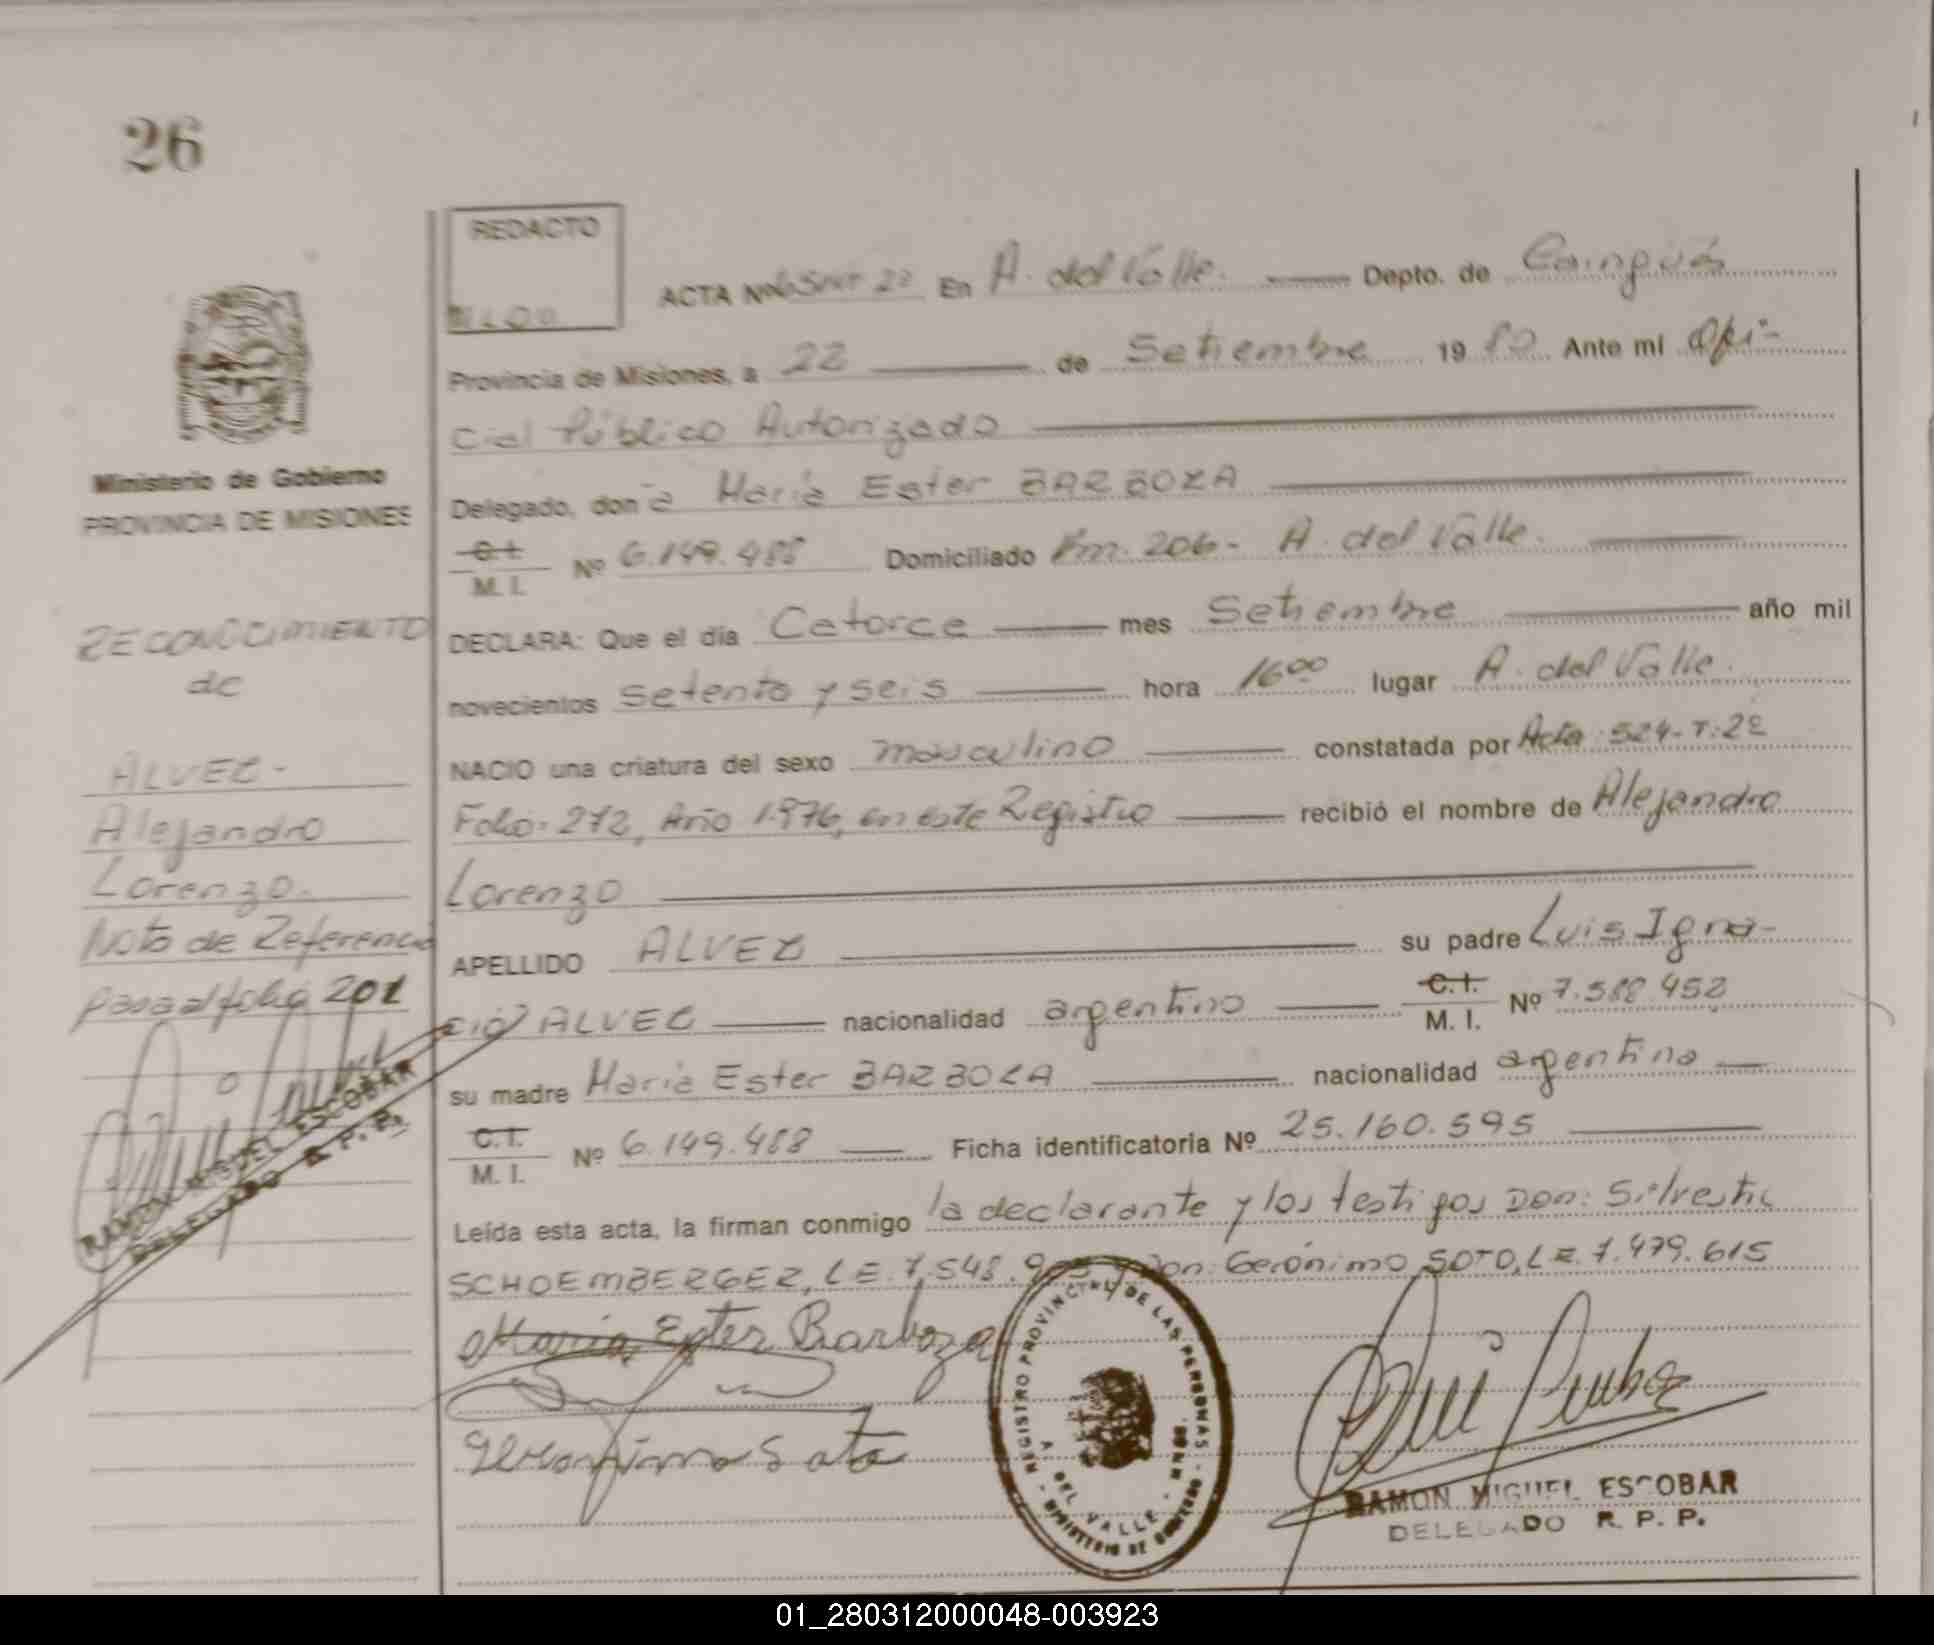 26
REDACTO
ACTA Nº En A. del Valle. Depto. de Cainguás
Provincia de Misiones, a 22 de Setiembre 1980 Ante mi Ofi-
cial Público Autorizado
Delegado, doña María Ester BARBOZA
C.I. M. I. Nº 6.149.488 Domiciliado Km. 206- A. del Valle.
DECLARA: Que el día Catorce mes Setiembre año mil
novecientos setenta y seis hora 16⁰⁰ lugar A. del Valle.
NACIO una criatura del sexo masculino constatada por Acta: 524-T:2º
Folio: 272, Año 1.976, en este Registro recibió el nombre de Alejandro
Lorenzo
APELLIDO ALVEZ su padre Luis Igna-
cio ALVEZ nacionalidad argentino C.I. M. I. Nº 7.588.452
su madre María Ester BARBOZA nacionalidad argentina
C.I. M. I. Nº 6.149.488 Ficha identificatoria Nº 25.160.595
Leída esta acta, la firman conmigo la declarante y los testigos Don: Silvestre
SCHOEMBERGER, LE. 7.548. Don: Gerónimo SOTO, LE. 7.479.615
María Ester Barboza
Geronimo Soto
REGISTRO PROVINCIAL DE LAS PERSONAS
A. DEL VALLE
MINISTERIO DE GOBIERNO
RAMON MIGUEL ESCOBAR
DELEGADO R. P. P.
Ministerio de Gobierno
PROVINCIA DE MISIONES
RECONOCIMIENTO
de
ALVEZ-
Alejandro
Lorenzo.
Nota de Referencia
pasa al folio 201
RAMON MIGUEL ESCOBAR
DELEGADO R. P. P.
01_280312000048-003923